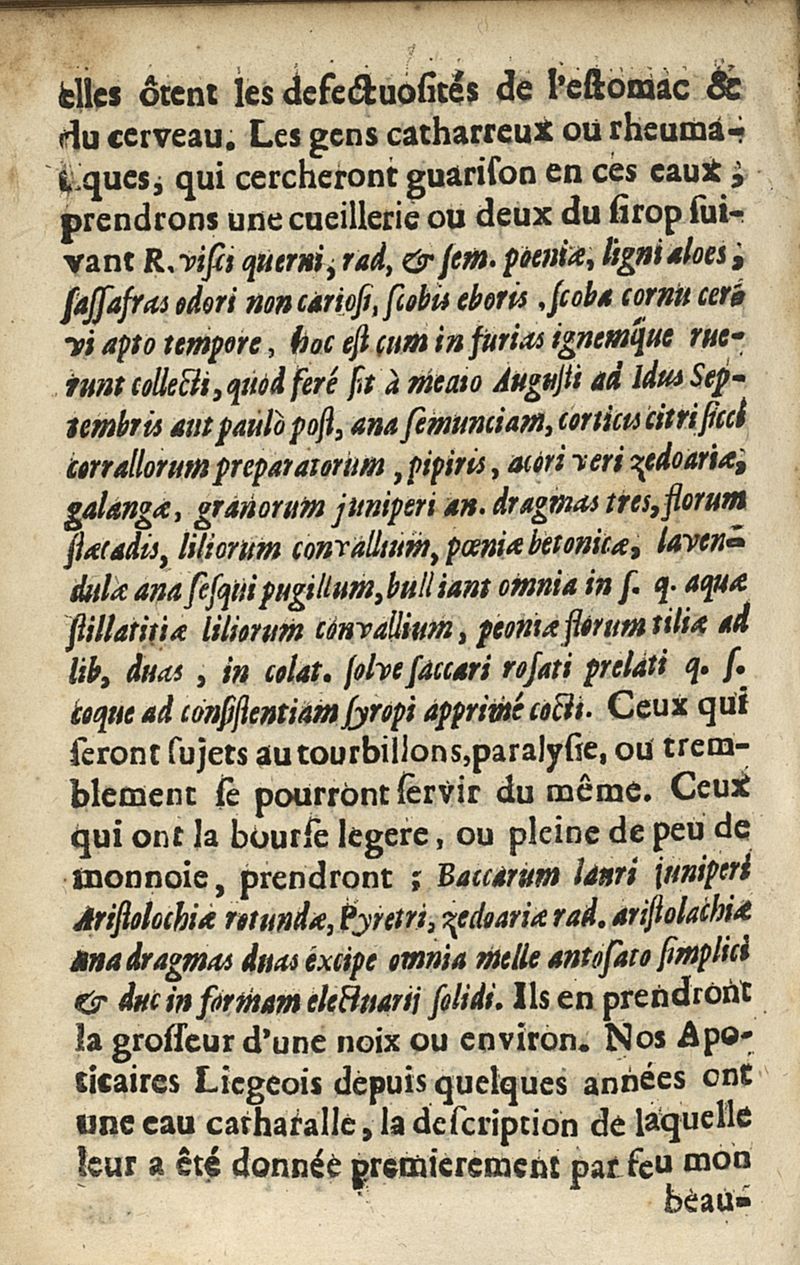 elles ôtent les defectuosités de l'estomac &
du cerveau. Les gens catharreux ou rheuma-
ques, qui cercheront guarison en ces eaux ;
prendrons une cueillerie ou deux du sirop sui-
vant R. visci querni, rad, & sem. poeniæ, ligni aloes ;
sassafras odori non cariosi, scobis eboris . scoba cornu cer
vi apto tempore, hoc est cum in furias ignemq́ue rue-
runt collecti, quod feré fit à meaio Augusti ad Idus Sep-
tembris aut paulò post, ana semunciam, corticis citri sicci
corrallorum preparatorum, pipiris, acori veri zedoariæ,
galangæ, granorum juniperi an. dragmas tres, florum
stæcadis, liliorum convallium, pœniæ betonicæ, laven-
dulæ ana sesqui pugillum, bulliant omnia in s. q. aquæ
stillatitiæ liliorum convallium, peoniæ florum tiliæ ad
lib, duas, in colat. solve saccari rosati prelati q. s.
coque ad consistentiam syropi apprimé cocti. Ceux qui
seront sujets au tourbillons, paralysie, ou trem-
blement se pourront servir du même. Ceux
qui ont la bourse legere, ou pleine de peu de
monnoie, prendront ; Baccarum lauri juniperi
Aristolochiæ rotundæ, Pyretri, zedoariæ rad. aristolachiæ
ana dragmas duas éxcipe omnia melle antosato simplici
& duc in formam electuarij solidi. Ils en prendront
la grosseur d'une noix ou environ. Nos Apo-
ticaires Liegeois depuis quelques années ont
une eau catharalle, la description de laquelle
leur a êté donnée premierement par feu mon
beau-